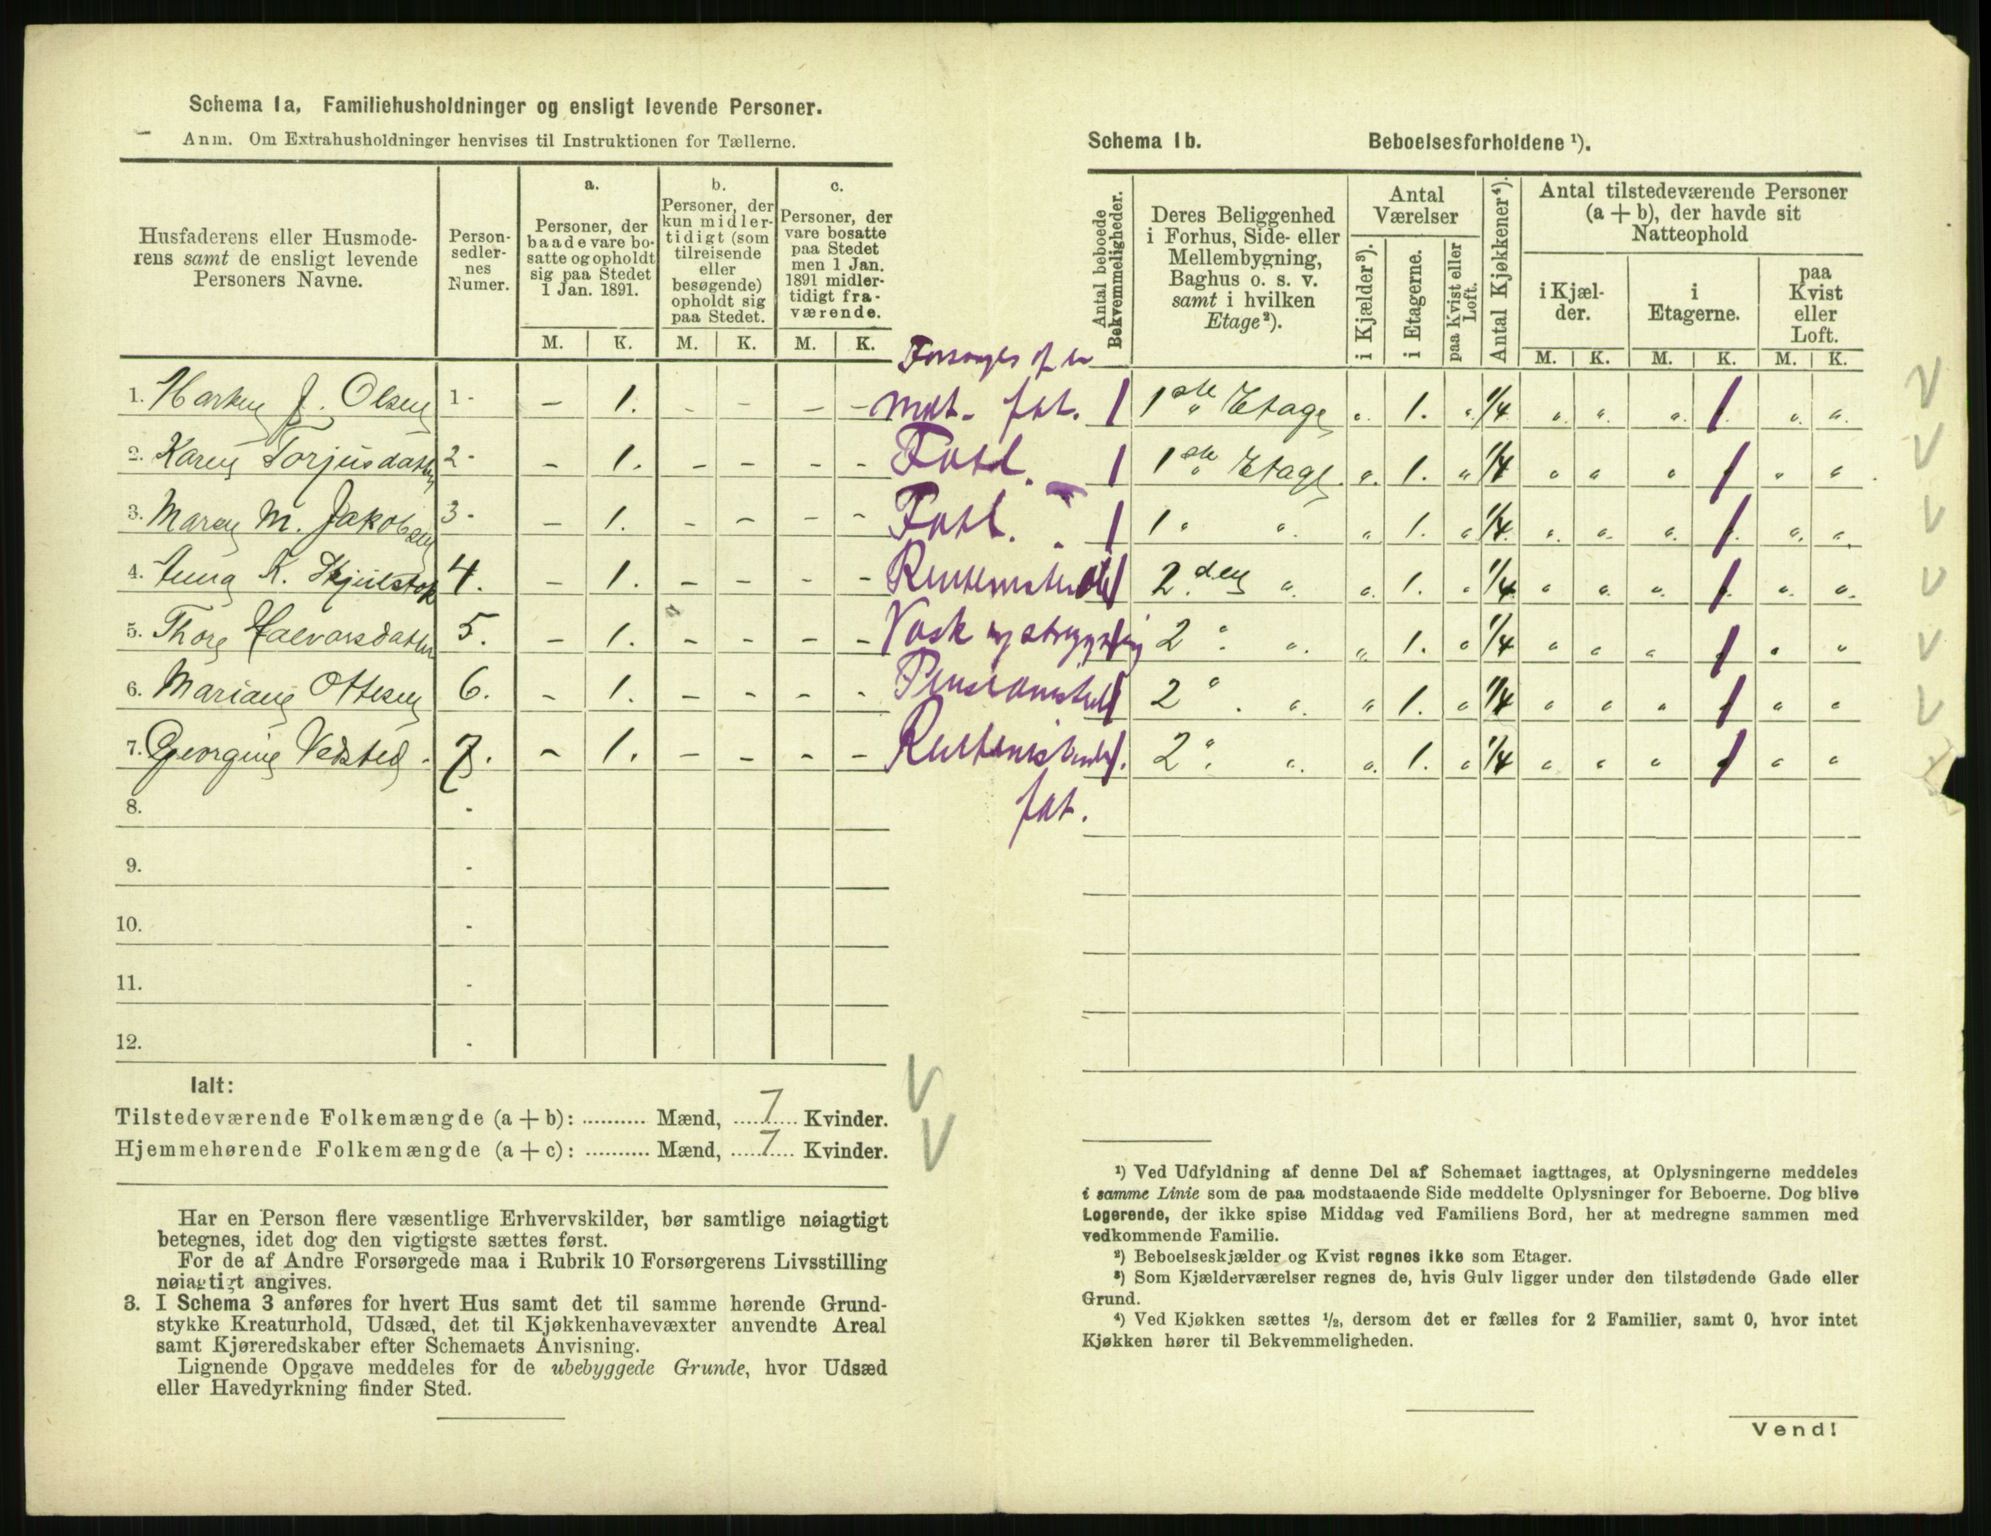 Schema 1a, Familiehusholdninger og ensligt levende Personer.
Anm. Om Extrahusholdninger henvises til Instruktionen for Tællerne.
Husfaderens eller Husmode-
rens samt de ensligt levende
Personers Navne.
Person-
sedler-
nes
Numer.
a.
Personer, der
baade vare bo-
satte og opholdt
sig paa Stedet
1 Jan. 1891.
b.
Personer, der
kun midler-
tidigt (som
tilreisende
eller
besøgende)
opholdt sig
paa Stedet.
c.
Personer, der
vare bosatte
paa Stedet
men 1 Jan.
1891 midler-
tidigt fra-
værende.
M. K. M. K. M. K.
1. J. Olsen 1 - – 1. - - - -
2. Karen Torjusdatter 2 - – 1. – – – –
3. Maren M. Jakobsen 3 - – 1. – – – –
4. Anna K. 4. – 1. – – – –
5. Thore Halvorsdatter 5. – 1. – – – –
6. Mariane Ottesen 6. – 1. – – – –
7. Georgine Vedsted. 7. – 1. – – – –
8. -
9. -
10. -
11. -
12. -
Forsørges af en
fat.
Fatl.
Fatl.
Vask og strygning
fat.
Ialt:
Tilstedeværende Folkemængde (a + b): .......... Mænd, 7 Kvinder.
Hjemmehørende Folkemængde (a + c): .......... Mænd, 7 Kvinder.
Har en Person flere væsentlige Erhvervskilder, bør samtlige nøiagtigt
betegnes, idet dog den vigtigste sættes først.
For de af Andre Forsørgede maa i Rubrik 10 Forsørgerens Livsstilling
nøiagtigt angives.
3. I Schema 3 anføres for hvert Hus samt det til samme hørende Grund-
stykke Kreaturhold, Udsæd, det til Kjøkkenhavevæxter anvendte Areal
samt Kjøreredskaber efter Schemaets Anvisning.
Lignende Opgave meddeles for de ubebyggede Grunde, hvor Udsæd
eller Havedyrkning finder Sted.
Schema 1b. Beboelsesforholdene ¹).
Antal beboede
Bekvemmeligheder.
Deres Beliggenhed
i Forhus, Side- eller
Mellembygning,
Baghus o. s. v.
samt i hvilken
Etage²).
Antal
Værelser
i Kjælder³).
i Etagerne.
paa Kvist eller
Loft.
Antal Kjøkkener⁴).
Antal tilstedeværende Personer
(a + b), der havde sit
Natteophold
i Kjæl-
der.
i
Etagerne.
paa
Kvist
eller
Loft.
M. K. M. K. M. K.
1 1ste Etage " 1. " 1/4 " " " 1 " "
1 1ste Etage " 1. " 1/4 " " " 1 " "
1 1 " " " 1. " 1/4 " " " 1 " "
1 2.den " " 1. " 1/4 " " " 1 " "
1 2 " " " 1. " 1/4 " " " 1 " "
1 2 " " " 1. " 1/4 " " " 1 " "
1 2 " " " 1. " 1/4 " " " 1 " "
¹) Ved Udfyldning af denne Del af Schemaet iagttages, at Oplysningerne meddeles
i samme Linie som de paa modstaaende Side meddelte Oplysninger for Beboerne. Dog blive
Logerende, der ikke spise Middag ved Familiens Bord, her at medregne sammen med
vedkommende Familie.
²) Beboelseskjælder og Kvist regnes ikke som Etager.
³) Som Kjælderværelser regnes de, hvis Gulv ligger under den tilstødende Gade eller
Grund.
⁴) Ved Kjøkken sættes ½, dersom det er fælles for 2 Familier, samt 0, hvor intet
Kjøkken hører til Bekvemmeligheden.
Vend!